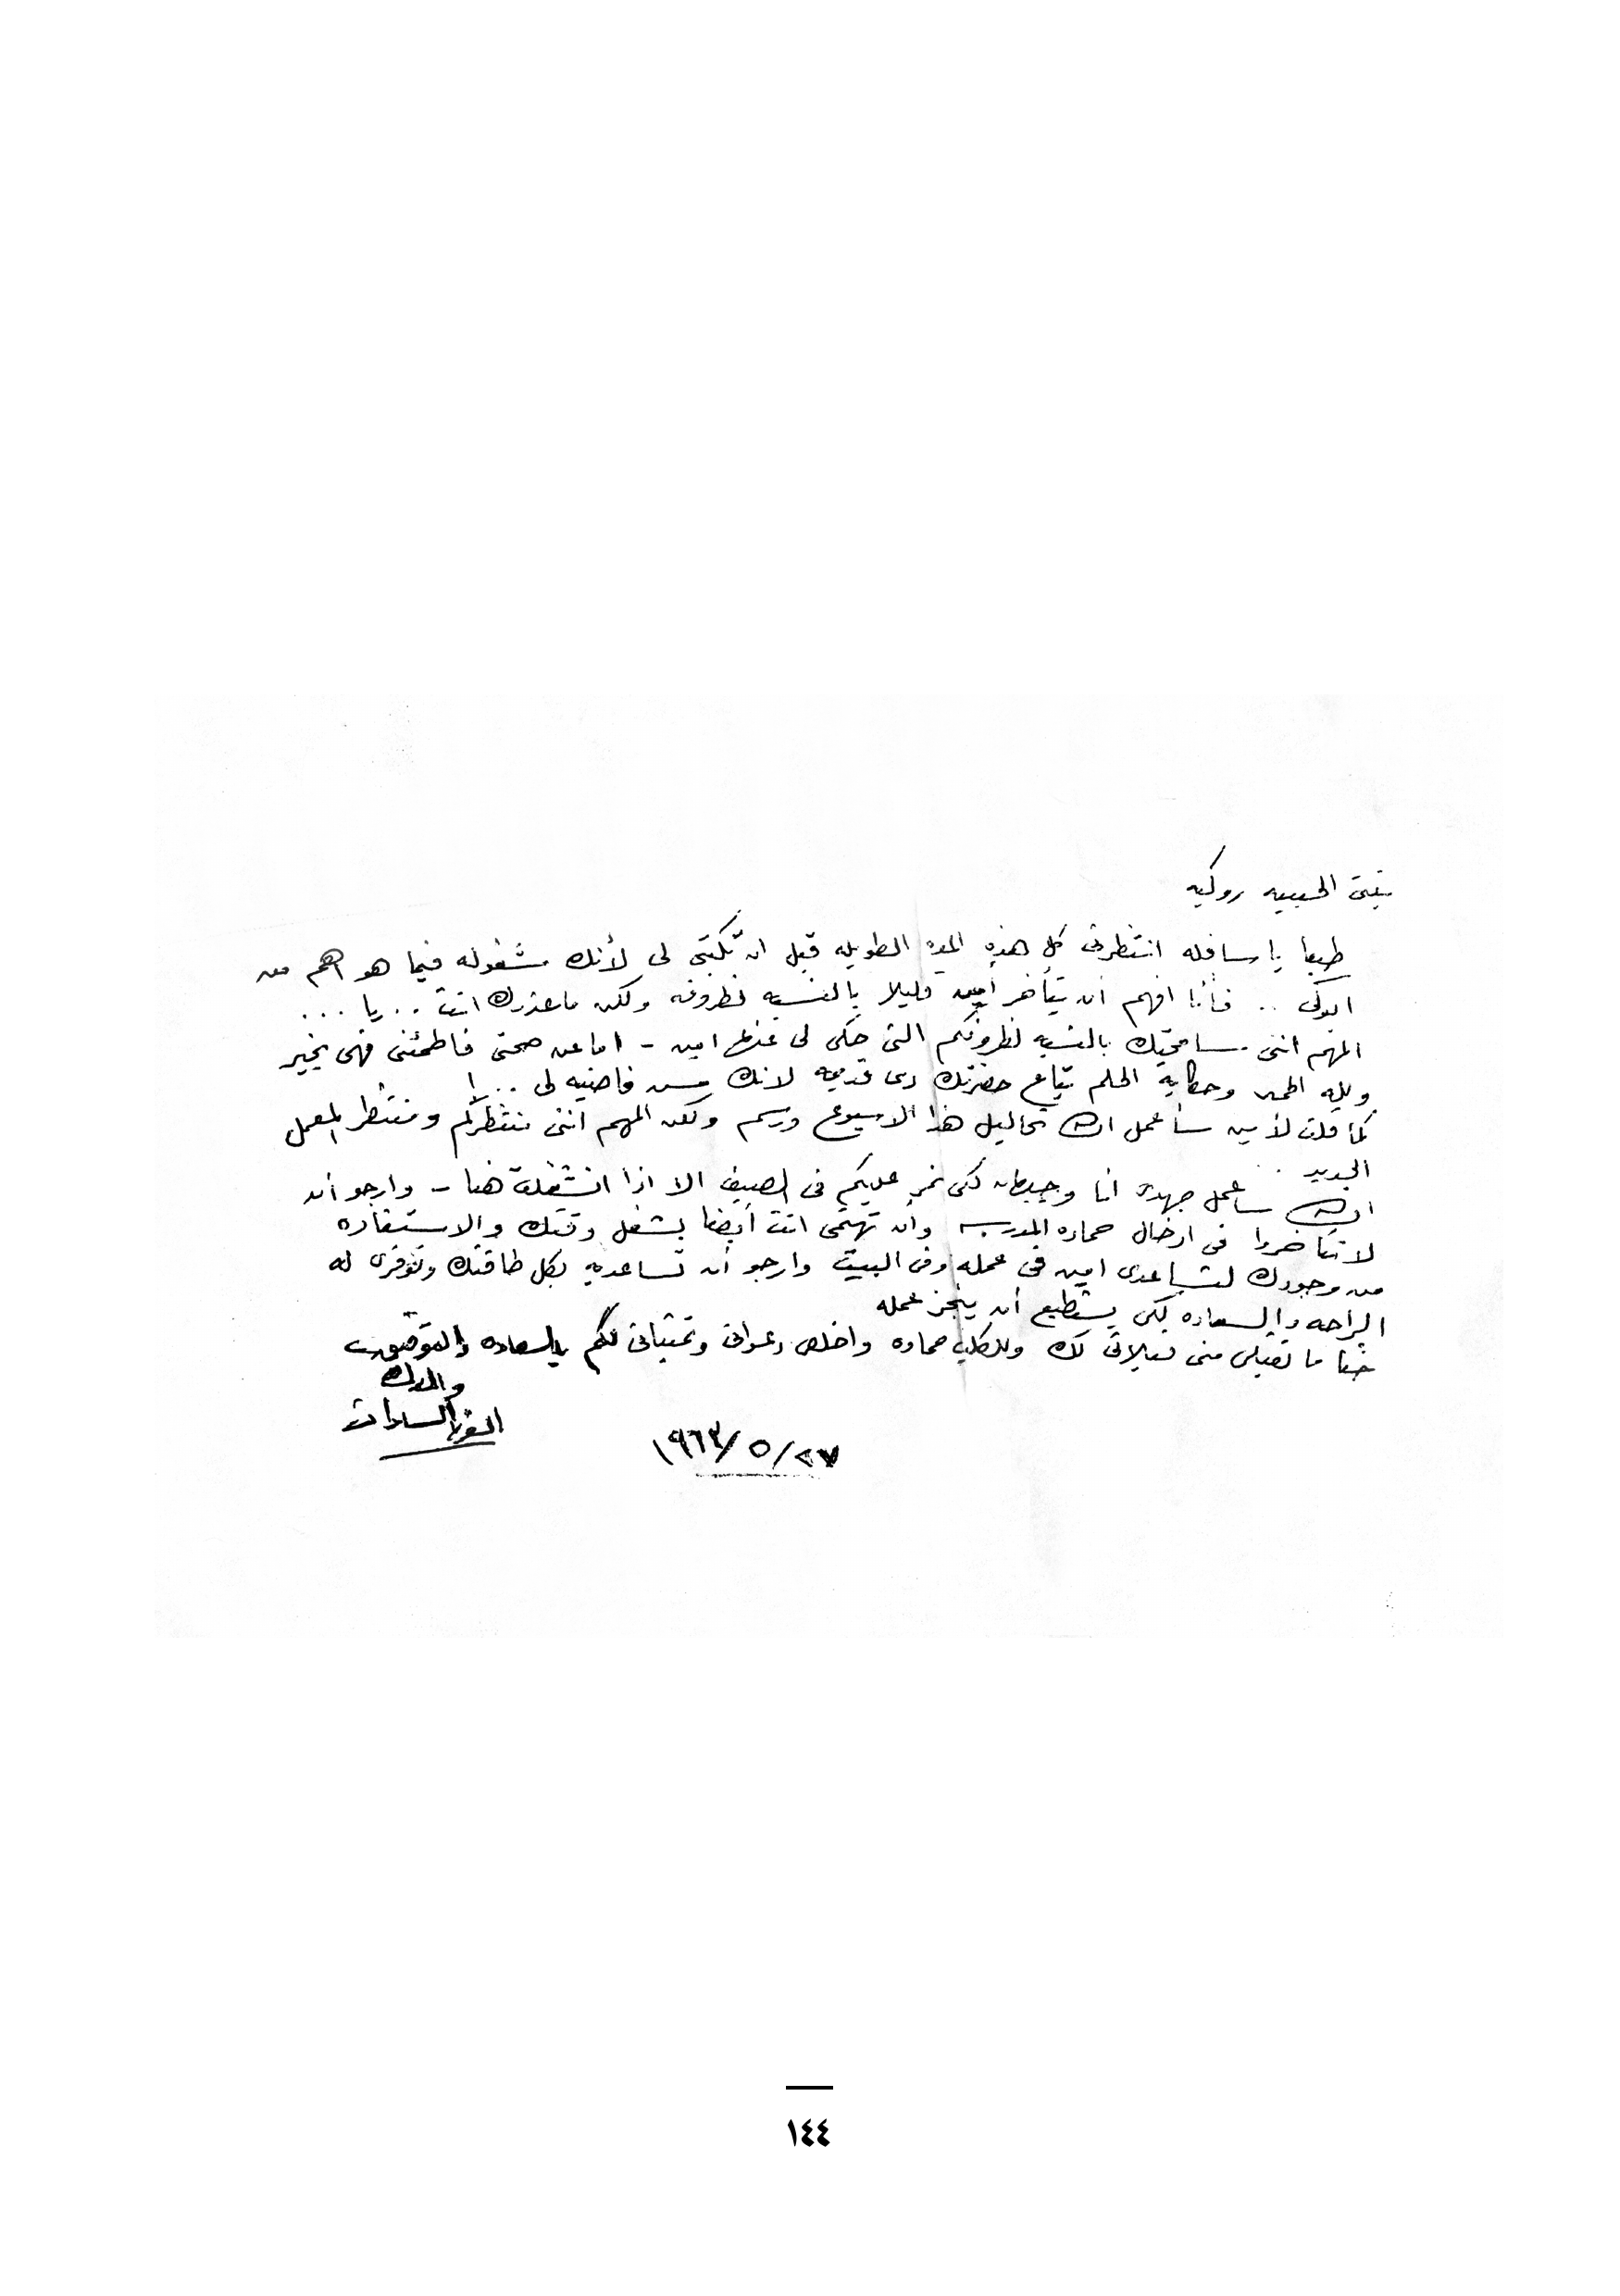 بنتى الحبيبه روكيه
طبعا يا سافله انتظرتى كل هذه المده الطويله قبل ان تكتبى لى لأنك مشغوله فيما هو اهم من
ابوكى .. فأنا افهم ان يتأخر أمين قليلا بالنسبه لظروفه ولكن ما عذرك انت .. يا ...
المهم اننى سامحتك بالنسبه لظروفكم التى حكى لى عنها امين - اما عن صحتى فاطمئنى فهى بخير
ولله الحمد وحكاية الحلم بتاع حضرتك دى قديمه لانك مش فاضيه لى .. !
كما قلت لأمين سأعمل ان شاء الله تحاليل هذا الاسبوع ورسم ولكن المهم اننى منتظركم ومنتظر المعمل
الجديد ..
ان شاء الله ساعمل جهدى انا وجيهان لكى نمر عليكم فى الصيف الا اذا انشغلت هنا - وارجو أن
لا تتأخروا فى ادخال حماده المدرسه وأن تهتمى انت أيضا بشغل وقتك والاستفاده
من وجودك لتساعدى امين فى عمله وفى البيت وارجو أن تساعديه بكل طاقتك وتوفرى له
الراحه والسعاده لكى يستطيع أن ينجز عمله
ختاما تقبلى منى قبلاتى لك وللكلب حماده واخلص دعواتى وتمنياتى لكم بالسعاده والتوفيق
والدك
انور السادات
٢٧/٥/١٩٦٣
١٤٤